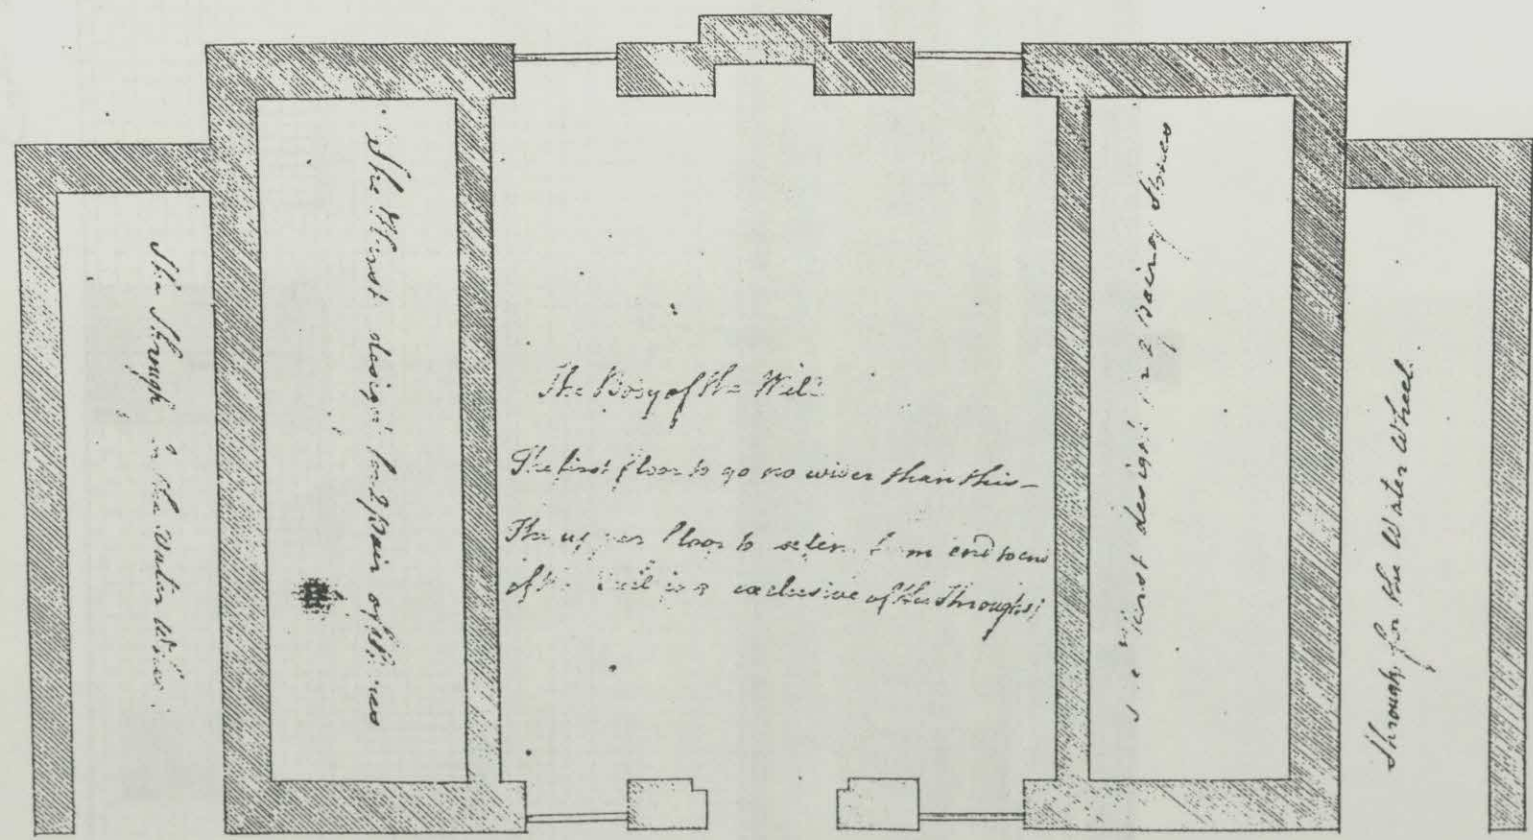 The Through in the Water Wheel
The Hurst design for 2 pair of Stones
The Body of the Mill
The first floor to go no wider than this—
The upper floor to extend from end to end
of the exclusive of the Throughs;
Hurst design 2 pair of Stones
Through for the Water Wheel.